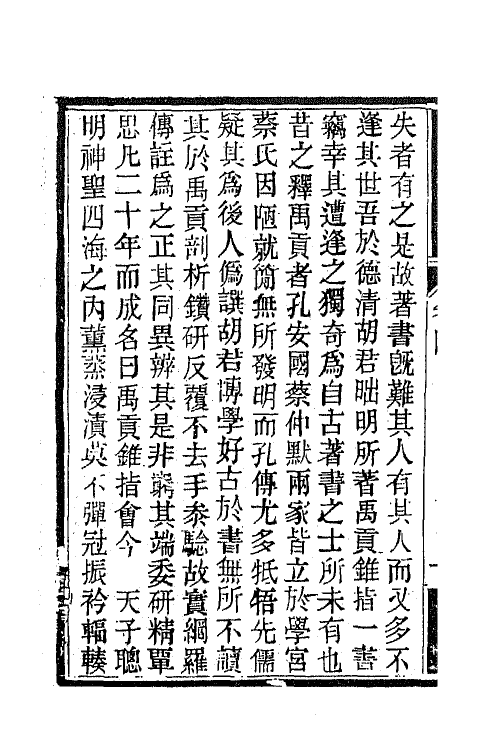 失者有之是故著書旣難其人有其人而又多不
逢其世吾於德清胡君朏明所著禹貢錐指一書
竊幸其遭逢之獨奇爲自古著書之士所未有也
昔之釋禹貢者孔安國蔡仲默兩家皆立於學宮
蔡氏因陋就簡無所發明而孔傳尤多牴牾先儒
疑其爲後人僞譔胡君博學好古於書無所不讀
其於禹貢剖析鑽研反覆不去手叅驗故實綱羅
傳註爲之正其同異辨其是非竆其端委硏精單
思凡二十年而成名曰禹貢錐指會今　天子聰
明神聖四海之內薰蒸浸漬莫不彈冠振衿輻輳